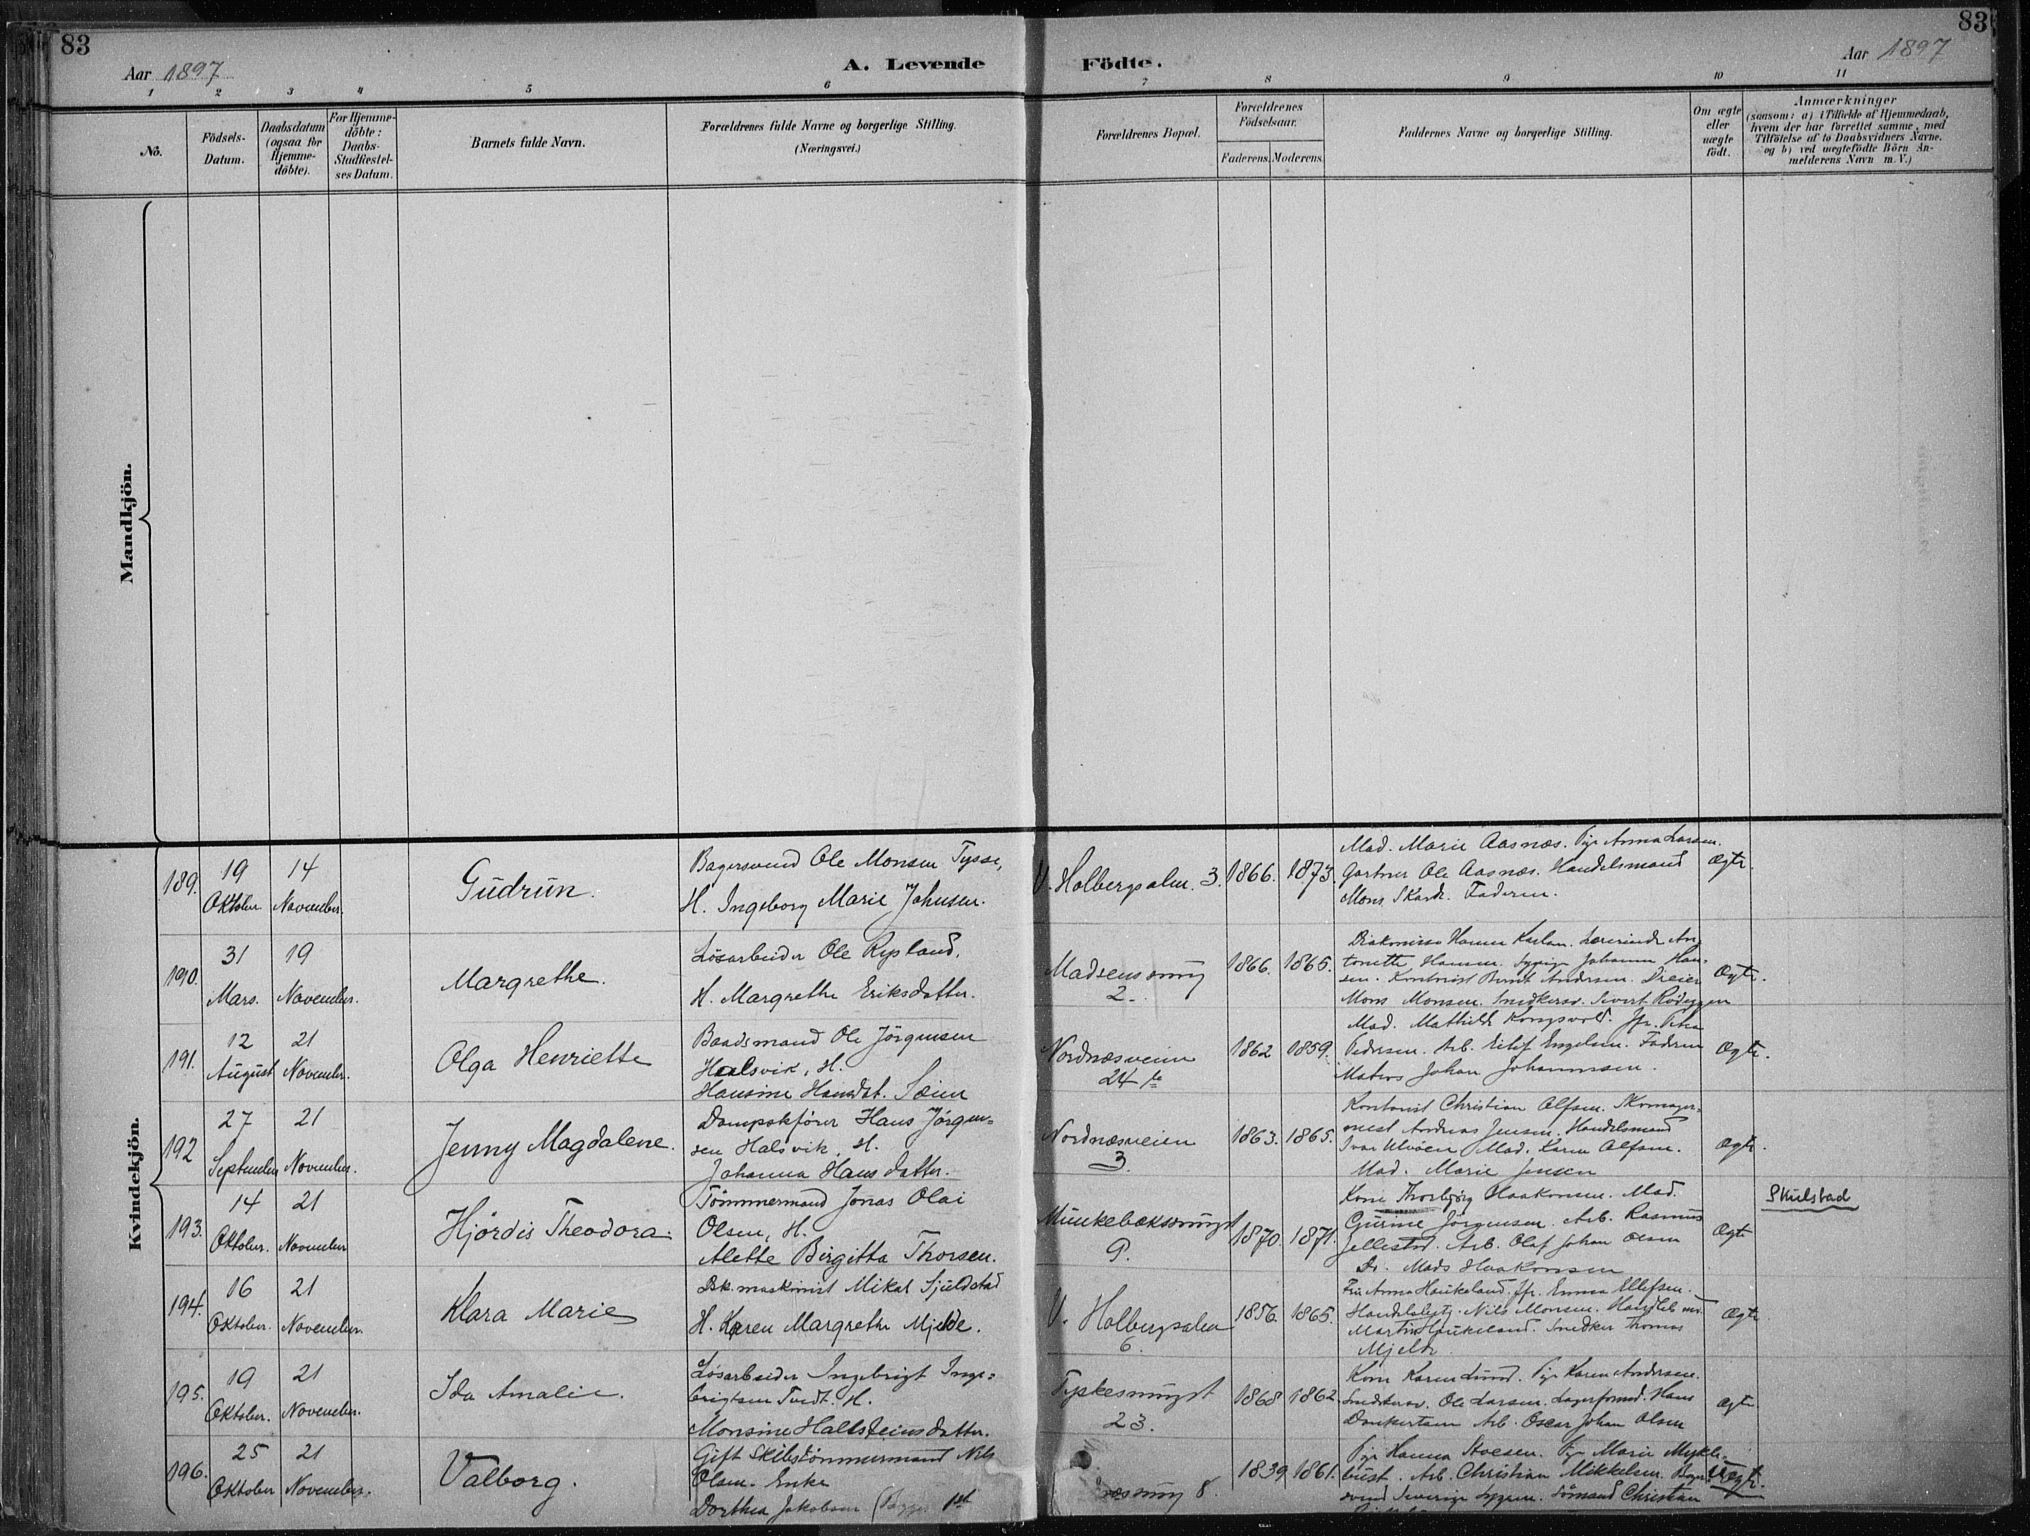 83
83
Aar 1897
A. Levende
Födte.
Aar 1897
1 2 3 4 5 6 7 8 9 10 11
No.
Födsels-
Datum.
Daabsdatum
(ogsaa for
Hjemme-
döbte).
For Hjemme-
döbte:
Daabs-
Stadfæstel-
ses Datum.
Barnets fulde Navn.
Forældrenes fulde Navne og borgerlige Stilling.
(Næringsvei.)
Forældrenes Bopæl.
Forældrenes
Födselsaar.
Faderens.
Moderens.
Faddernes Navne og borgerlige Stilling.
Om ægte
eller
uægte
födt.
Anmærkninger
(saasom: a) i Tilfælde af Hjemmedaab,
hvem der har forrettet samme, med
Tilföielse af to Daabsvidners Navne.
og b) ved uægtefödte Börn An-
melderens Navn m. V.)
Mandkjön.
Kvindekjön.
189.
19
Oktober
14
November.
Gudrun.
Bagersvend Ole Monsen Tysse,
H. Ingeborg Marie Johnsen.
V. Holbergsalm. 3.
1866.
1873.
Mad. Marie Aasnæs. Pige Anna Larsen.
Gartner Ole Aasnæs. Handelsmand
Mons Skard. Faderen.
Ægte.
190.
31
Mars.
19
November.
Margrethe.
Løsarbeider Ole Rypland,
H. Margrethe Eriksdatter.
Madsenssmug
2.
1866.
1865.
Diakonisse Hanna Lærerinde An-
tonette Hamm. Sypige Johanna Han-
sen. Kontorist Bernt Andersen. Dreier
Mons Monsen. Snedkersv. Sivert
Ægte.
191.
12
August
21
November.
Olga Henriette
Baadsmand Ole Jörgensen
Halsvik, H.
Hansine Hansdt. Sæim
Nordnæsveien
24
1862
1859.
Mad. Mathilde Kongsvold. Jfr. Petra
Pedersen. Arb. Eilif Engelsen. Faderen
Matros Johan Johannesen.
Ægte.
192
27
September
21
November.
Jenny Magdalene.
Dampskfører Hans Jørgen-
sen Halsvik, H.
Johanna Hansdatter.
Nordnæsveien
3.
1863.
1865.
Kontorist Christian Olfsen. Skomager-
mest Andreas Jensen. Handelsmand
Ivar Ulvöen Mad. Karen Olfsen.
Mad. Marie Jensen
Ægte.
193.
14
Oktober.
21
November
Hjördis Theodora.
Tömmermand Jonas Olai
Olsen, H.
Alette Birgitta Thorsen.
Munkebækssmugst
9.
1870.
1871.
Kone Thorbjörg Haakonsen. Mad.
Gurine Jörgensen. Arb. Rasmus
Jellestad. Arb. Olaf Johan Olsen
Do. Mads Haakonsen
Ægte
Skulstad
194.
16
Oktober.
21
November.
Klara Marie
Bk.maskinist Mikal Sjulstad
H. Karen Margrethe Mjelde.
V. Holbergsalm
6.
1856.
1865.
Fru Anna Haukeland. Jfr. Emma Ellefsen.
Nils Monsen.
Martin Haukeland. Snedker Thomas
Mjelde
Ægte
195.
19
Oktober.
21
November.
Ida Amalie.
Løsarbeider Ingebrigt Inge-
brigtsen Tvedt. H.
Monsine Hallsteinsdatter.
Tyskesmugst
23.
1868
1862.
Kone Karen Lund. Pige Karen Andersen.
Snedkersv. Ole Larsen. Hans
Arb. Oscar Johan Olsen
Ægte
196.
25
Oktober
21
November.
Valborg.
Gift Skibstömmermand Nils
Olsen. Enke
Dorthea Jakobsen
smug 8
1839.
1861.
Pige Hanna Pige Marie Mykle-
bust. Arb. Christian Mikkelsen.
svend Severin Sömand Christian
Uægte.